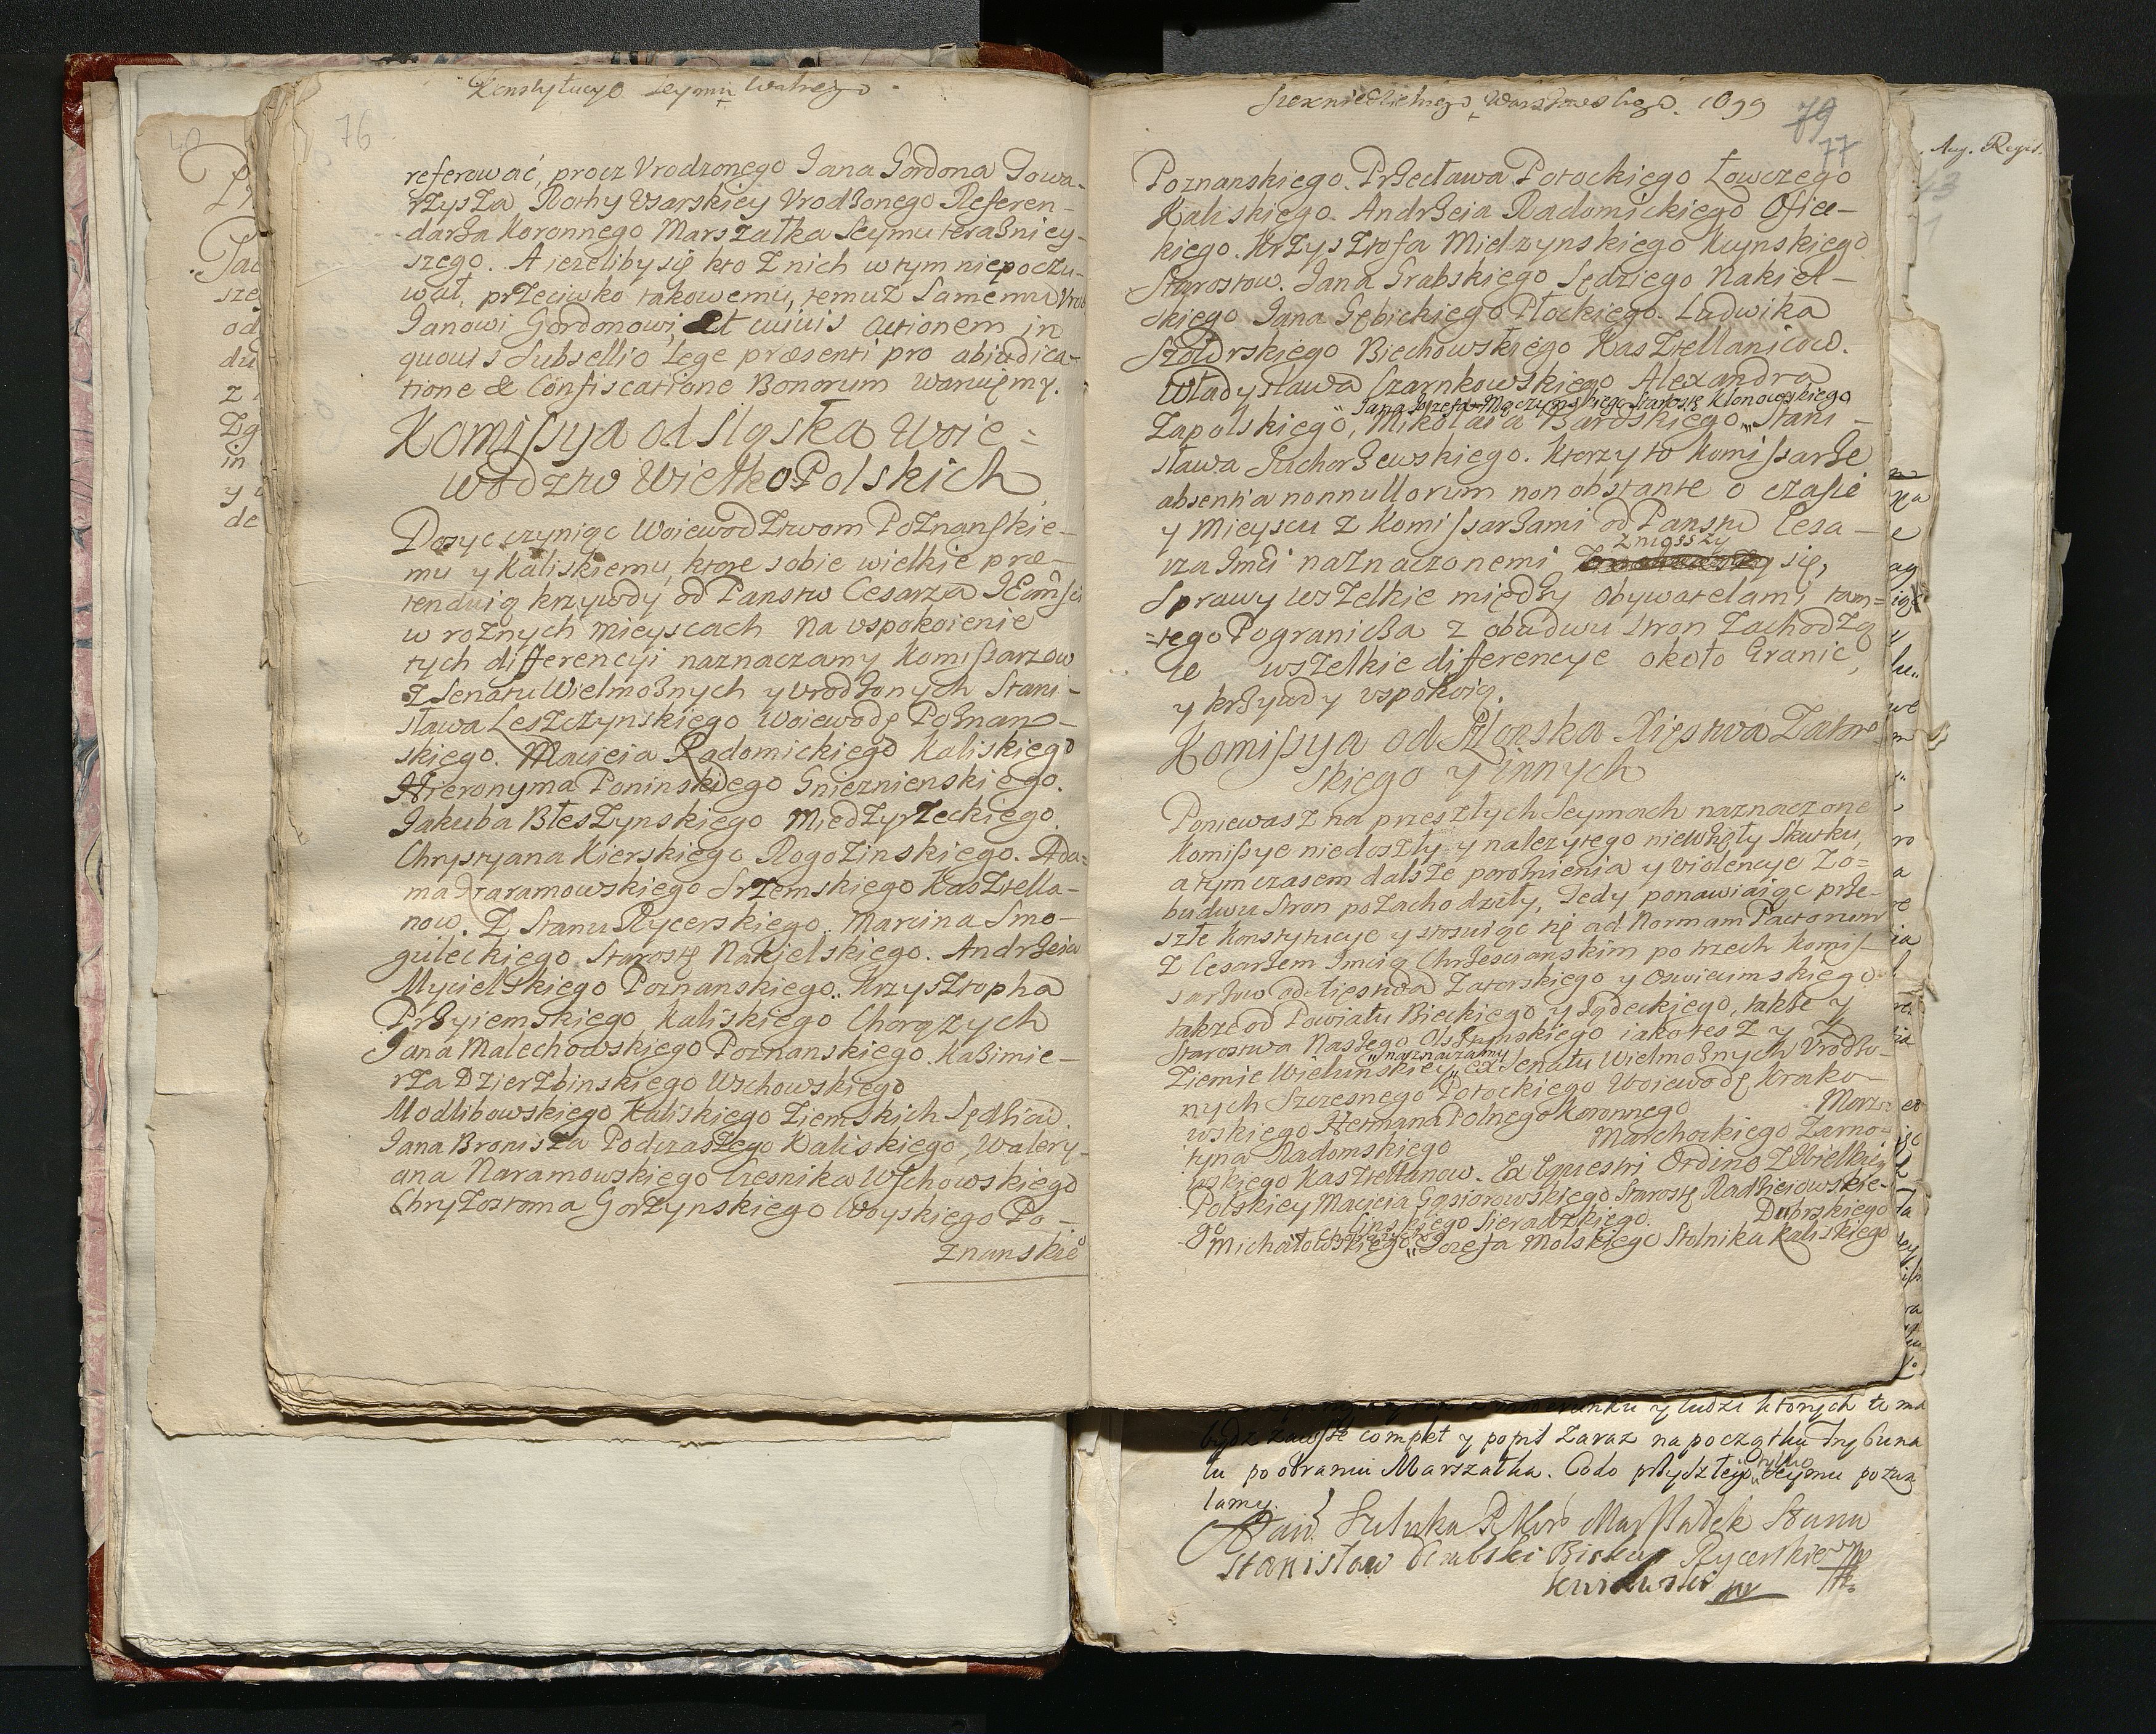 Konstytucye Seymu Walnego
76
referować, procz Vrodzonego Jana Gordona Towa-
rzysza Rothy Vsarskiey Vrodzonego Referen-
darza Koronnego Marszałka Seymu terazniey-
szego. A iezeliby się kto z nich w tym niepoczu-
wał, przeciwko takowemu, temuz samemu Vrod
Janowi Gordonowi, et cuiuis actionem in
quouis Subsellio lege præsenti pro abiudica-
tione & Confiscatione Bonorum waruiemy.
Komissya od Sląska Woie-
wodztw WielkoPolskich
Dosyc czyniąc Woiewodztwom Poznanskie-
mu y Kaliskiemu, ktore sobie wielkie præ-
tenduią krzywdy od Panstw Cesarza JEMści
w roznych mieyscach na vspokoienie
tych differencyi naznaczamy Komissarzow
z Senatu Wielmoznych y vrodzonych Stani-
sława Leszczynskiego Woiewodę Poznan-
skiego. Macieia Radomickiego Kaliskiego
Hieronyma Poninskiego Gnieznienskiego.
Jakuba Błeszynskiego Miedzyrzeckiego
Chrystyana Kierskiego Rogozinskiego. Ada-
ma Naramowskiego Srzemskiego Kasztella-
now. Z Stanu Rycerskiego. Marcina Smo-
guleckiego Starostę Nakielskiego. Andrzeia
Mycielskiego Poznanskiego. Krzysztopha
Przyiemskiego Kaliskiego Chorązych
Jana Malechowskiego Poznanskiego. Kazimie-
rza Dzierzbinskiego Wschowskiego
Modlibowskiego Kaliskiego Ziemskich Sędziow.
Jana Bronisza Podczaszego Kaliskiego, Walery-
ana Naramowskiego Czesnika Wschowskiego
Chryzostoma Gorzynskiego Woyskiego Po-
znanskie
Szescniedzielnego Warszawskiego. 1699
79
77
Poznanskiego. Przecława Potockiego Łowczego
Kaliskiego. Andrzeia Radomickiego Osiec-
kiego. Krzysztofa Mielzynskiego Kcynskiego
Starostow. Jana Grabskiego Sędziego Nakiel-
skiego Jana Gębickiego Płockiego. Ludwika
Szołdrskiego Biechowskiego Kasztellanicow.
Władysława Czarnkowskiego Alexandra
Jana Jozefa Mączynskiego Starostę Klonowskiego
Zapolskiego", Mikołaia Bardskiego, Stani-
sława Suchorzewskiego. Ktorzy to Komissarze
absentia nonnullorum non obstante o czasie
y mieyscu z Komissarzami od Panstw Cesa-
zniosszy
rza Jmci naznaczonemi się,
Sprawy wszelkie między Obywatelami tam-
tego Pogranicza z obudwu stron zachodzą
ce wszelkie differencye około Granic,
y krzywdy vspokoią.
Komissya od Sląska Xięstwa Zator-
skiego y innych
Poniewasz na przeszłych Seymach naznaczone
Komissye niedoszły y nalezytego niewzięły skutku,
a tym czasem dalsze poroznienia y violencye zo-
budwu stron pozachodziły, Tedy ponawiaiąc prze-
szłe Konstytucye y stosuiąc się ad Normam Pactorum
z Cesarzem Jmcią Chrzescianskim po trzech Komis-
sarzow od Xięstwa Zatorskiego y Oswiecimskiego
takze od Powiatu Bieckiego y Sądeckiego, takze y
Starostwa Naszego Olsztynskiego iako tesz y z
naznaczamy
Ziemie Wielunskiey" ex Senatu Wielmoznych Vrodzo-
nych Szczesnego Potockiego Woiewodę Krako-
wskiego Hetmana Polnego Koronnego Marci
tyna Radomskiego Marchockiego Zarno-
wskiego Kasztellanow. Ex Equestri Ordine Z Wielkiey
Polskiey Macieia Gąsiorowskiego Starostę Radzieiowskie-
go Sieradzkiego. Dobrskiego
Chorązych
Michałowskiego" Jozefa Molskiego Stolnika Kaliskiego
Aug. Regis.
y ludzi ktorych tu ma
bydz zawsze complet y popis zaraz na początku Trybuna
łu po obraniu Marszałka. Co do przyszłego tylko Seymu pozwa
lamy.
Marszałek Stanu
Stanisław Dembski Biskup Rycerskiego
Kuiawski